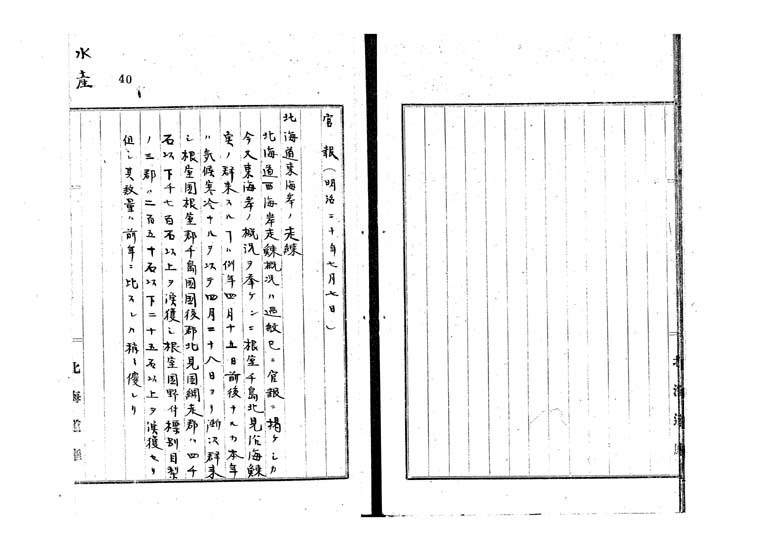 水産
40
官報(明治二十年七月七日)
北海道東海岸ノ走鰊
北海道西海岸走鰊概況ハ過般已ニ官報ニ掲ケシカ
今又東海岸ノ概況ヲ挙ケンニ根室千島北見沿海鰊
実ノ群来スルヿハ例年四月十五日前後ナルカ本年
ハ気候寒冷ナルヲ以テ四月二十八日ヨリ漸次群来
シ根室國根室郡千島國國後郡北見國網走郡ハ四千
石以下千七百石以上ヲ漁獲シ根室國野付標別目梨
ノ三郡ハ二百五十石以下二十五石以上ヲ漁獲セリ
但シ其数量ハ前年ニ比スレハ稍々優レリ
北海道廳
北海道廳